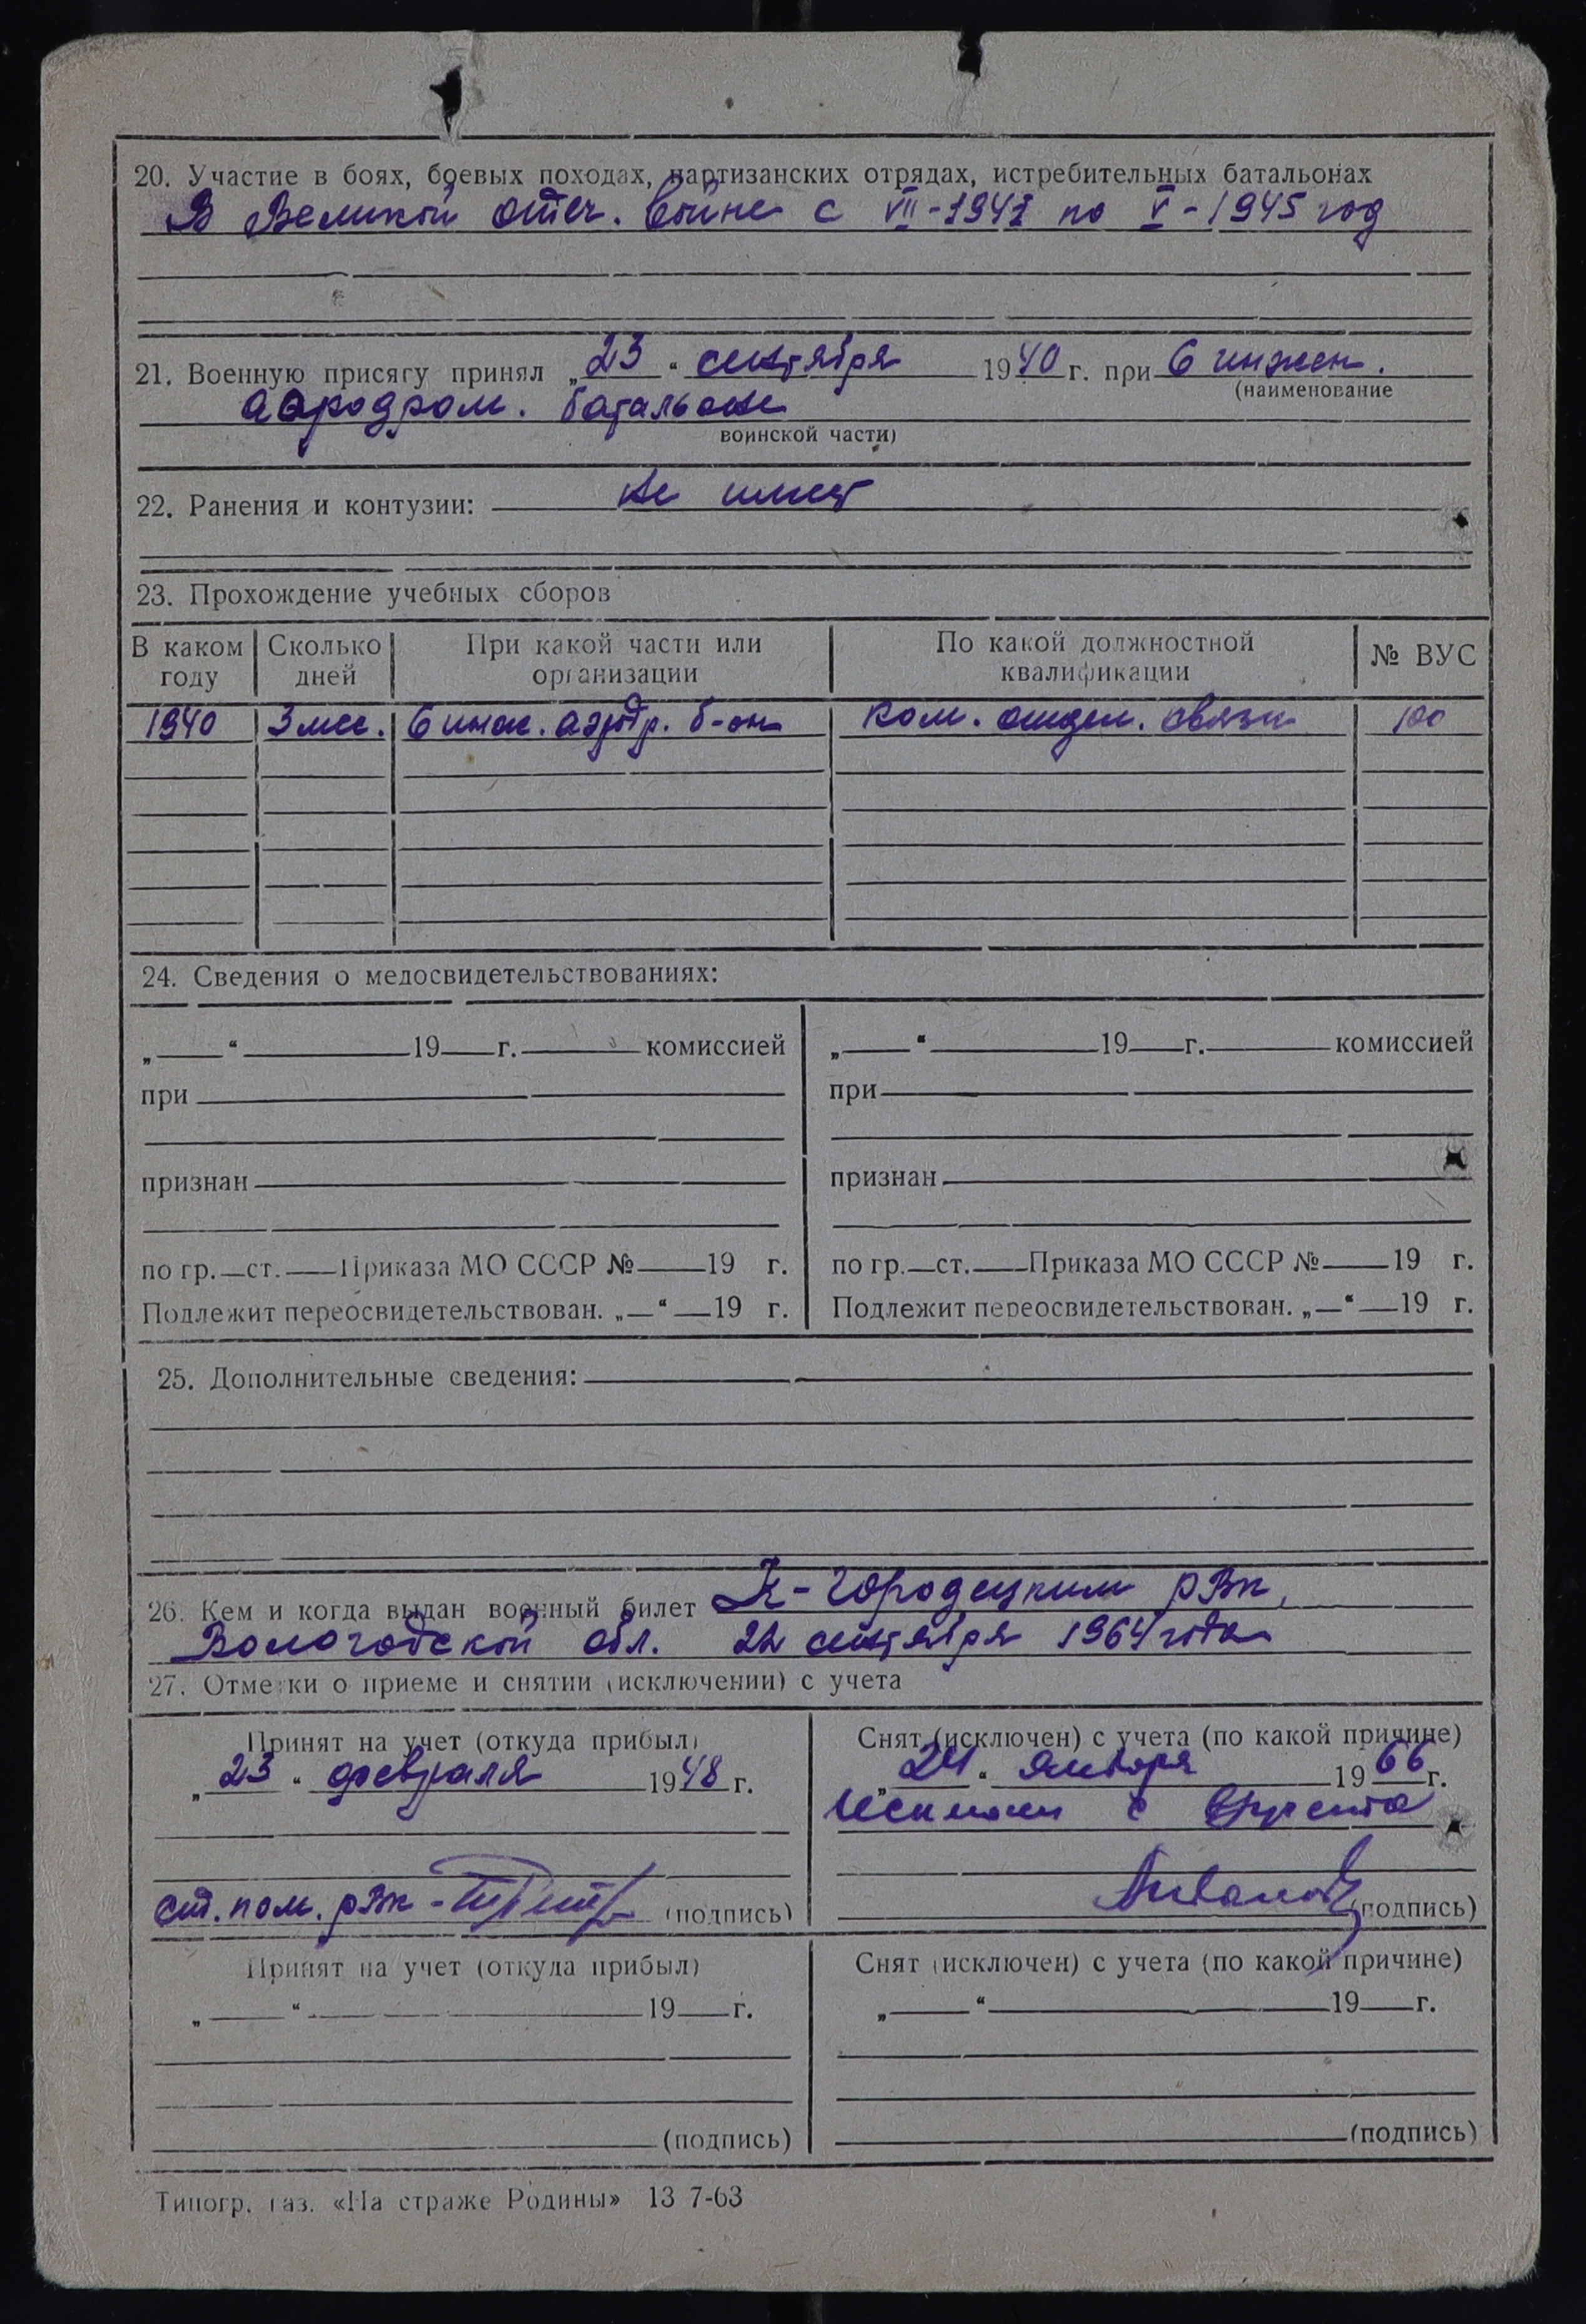 20. Участие в боях, боевых походах, партизанских отрядах, истребительных батальонах
В Великой отеч. войне с VII-1941 по V-1945 год
21. Военную присягу принял „23“ сентября 1940 г. при 6 инжен.
(наименование
аэродром. батальоне
воинской части)
22. Ранения и контузии: не имеет
23. Прохождение учебных сборов
В каком году Сколько дней При какой части или организации По какой должностной квалификации № ВУС
1940 3 мес. 6 инж. аэродр. б-он ком. отдел. связи 100
24. Сведения о медосвидетельствованиях:
„ “ 19 г. комиссией „ “ 19 г. комиссией
при при
признан признан
по гр. ст. Приказа МО СССР № 19 г. по гр. ст. Приказа МО СССР № 19 г.
Подлежит переосвидетельствован. „ “ 19 г. Подлежит переосвидетельствован. „ “ 19 г.
25. Дополнительные сведения:
26. Кем и когда выдан военный билет К-Городецким рвк,
Вологодской обл. 22 сентября 1964 года
27. Отметки о приеме и снятии (исключении) с учета
Принят на учет (откуда прибыл) Снят (исключен) с учета (по какой причине)
„23“ февраля 1948 г. „24“ января 1966 г.
с
ст. пом. рвк - (подпись) (подпись)
Принят на учет (откуда прибыл) Снят (исключен) с учета (по какой причине)
„ “ 19 г. „ “ 19 г.
(подпись) (подпись)
Типогр. газ. «На страже Родины» 13 7-63